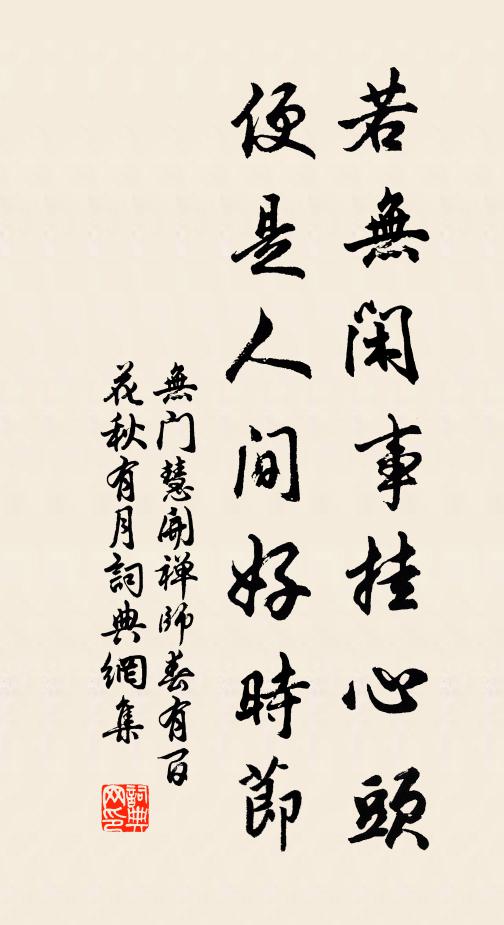 若無閑事挂心頭
便是人间好時節
無门慧開禅師春有百
花秋有月詞典網集
詞典
网印